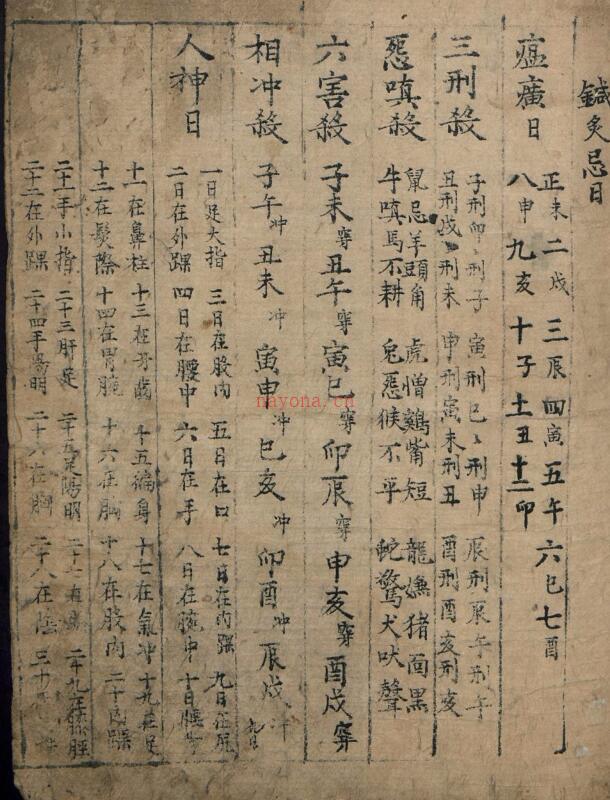 鍼灸忌日
瘟癀日 正未 二戌 三辰 四寅 五午 六巳 七酉
八申 九亥 十子 土丑 十二卯
三刑殺 子刑卯〻刑子 寅刑巳〻刑申 辰刑辰午刑午
丑刑戌〻刑未 申刑寅未刑丑 酉刑酉亥刑亥
惡嗔殺 鼠忌羊頭角 虎憎鷄嘴短 龍嫌猪面黑
牛嗔馬不耕 兔惡猴不平 蛇驚犬吠聲
六害殺 子未穿丑午穿寅巳穿卯辰穿申亥穿酉戌穿
相冲殺 子午冲丑未冲寅申冲巳亥冲卯酉冲辰戌冲
人神日 一日足大指 三日在股內 五日在口 七日在內踝 九日在尻
二日在外踝 四日在腰中 六日在手 八日在腕中 十日腰
十一在鼻柱 十三在牙齒 十五徧身 十七在氣冲 十九在足
十二在髮際 十四在胃脘 十六在胸 十八在股內 二十內踝
二十一手小指 二十三肝足 二十五足陽明 二十七在 二十九在膝脛
二十二在外踝 二十四手陽明 二十六在胸 二十八在陰 三十
nayona.cn